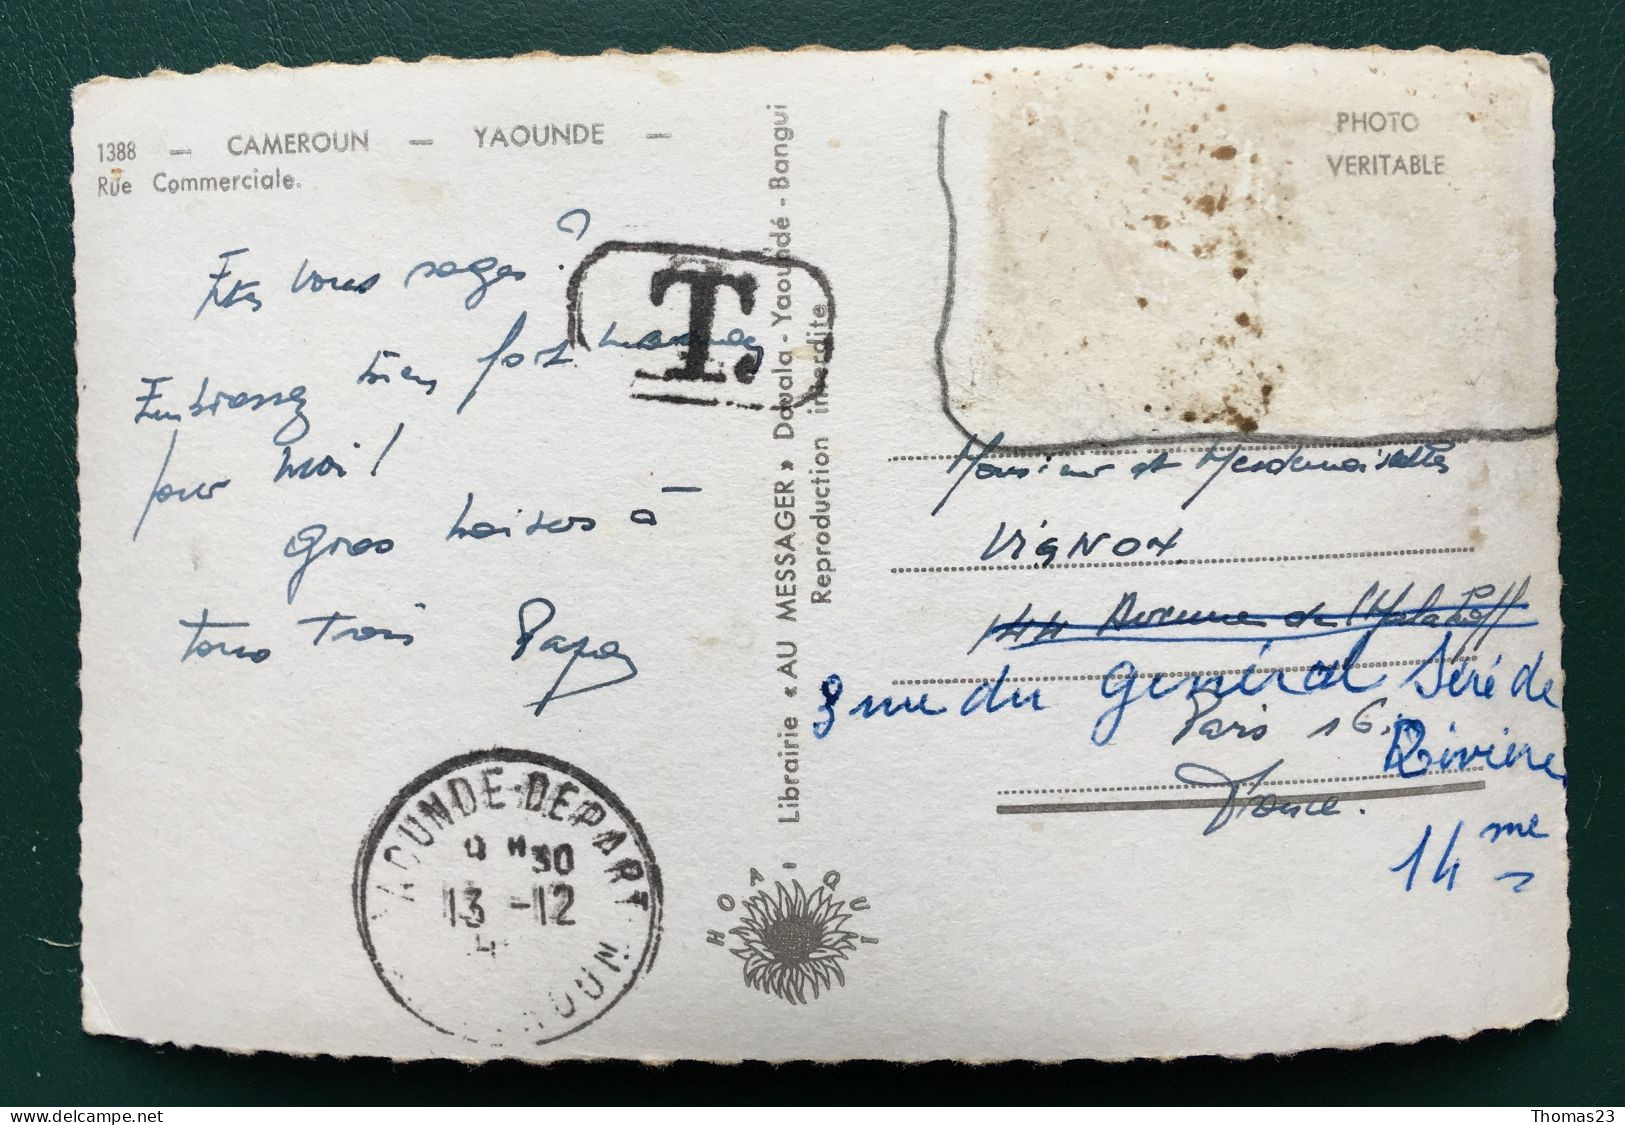 1388 — CAMEROUN — YAOUNDE —
Rue Commerciale.
PHOTO
VERITABLE
Etes vous sages ?
Embrassez bien fort maman
pour moi !
Gros baisers à —
tous trois Papa
T.
Librairie « AU MESSAGER » Douala - Yaoundé - Bangui
Reproduction interdite
Monsieur et Mesdemoiselles
VIGNOX
144 Avenue de Malakoff
8 rue du Général Séré de
Rivière
Paris 16.
France.
14me
YAOUNDE-DEPART
H 30
13 -12
4
HOA-QUI
Thomas23
delcampe.net